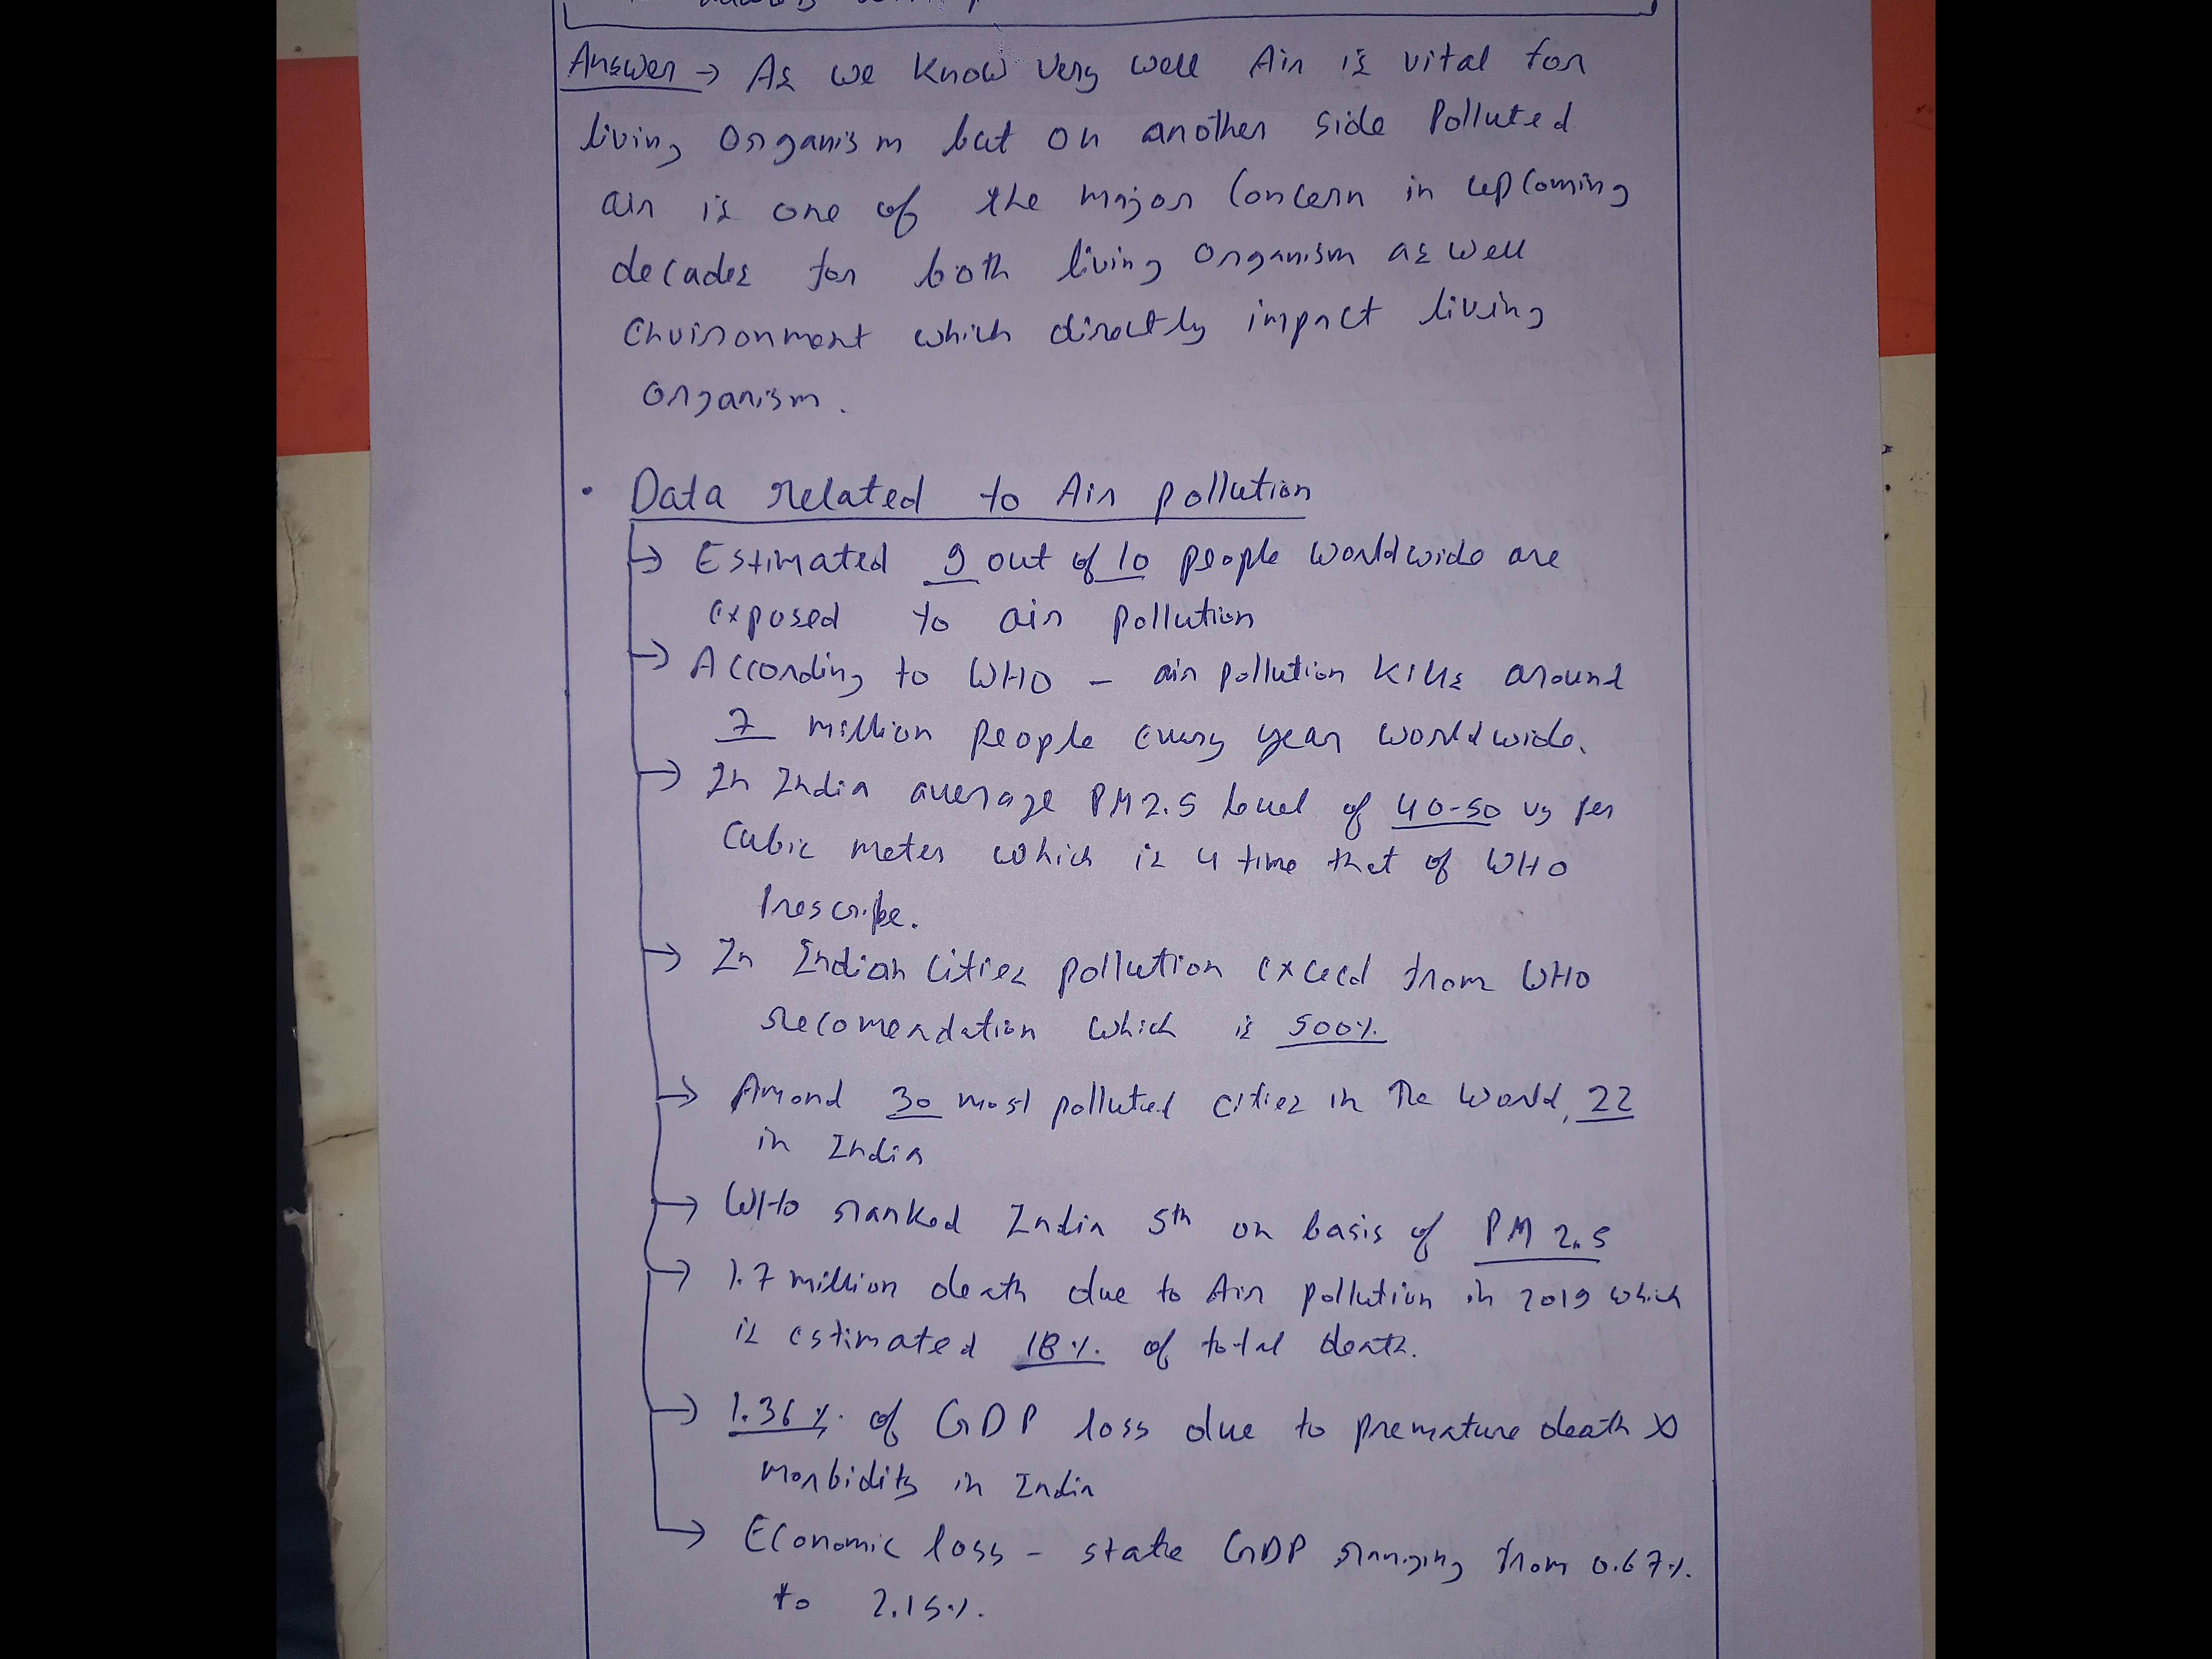 Answer → As we know very well Air is vital for
living organism but on another side Polluted
air is one of the major concern in upcoming
decades for both living organism as well
Environment which directly impact living
organism.
• Data related to Air pollution
→ Estimated 9 out of 10 people worldwide are
exposed to air pollution
→ According to WHO - air pollution kills around
7 million people every year worldwide.
→ In India average PM 2.5 level of 40-50 ug per
cubic meter which is 4 time that of WHO
Prescribe.
→ In Indian cities pollution exceed from WHO
recomendation which is 500%
→ Amond 30 most polluted cities in the world, 22
in India
→ WHO ranked India 5th on basis of PM 2.5
→ 1.7 million death due to Air pollution in 2019 which
is estimated 18% of total death.
→ 1.36% of GDP loss due to premature death &
morbidity in India
→ Economic loss - state GDP ranging from 0.67%
to 2.15%.